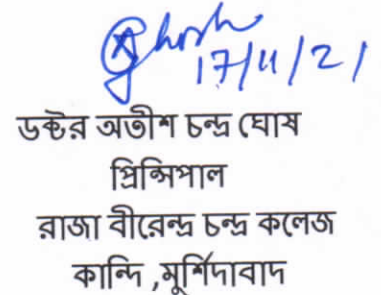 Ghosh
17/11/21
ডক্টর অতীশ চন্দ্র ঘোষ
প্রিন্সিপাল
রাজা বীরেন্দ্র চন্দ্র কলেজ
কান্দি ,মুর্শিদাবাদ